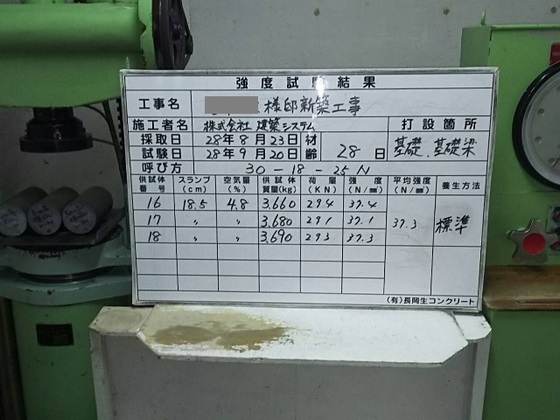 強度試験結果
工事名 様邸新築工事
施工者名 株式会社 建築システム 打設箇所
採取日 28年8月23日 材齢 28日 基礎、基礎梁
試験日 28年9月20日
呼び方 30-18-25N
供試体番号 スランプ(cm) 空気量(%) 供試体質量(kg) 荷重(KN) 強度(N/㎟) 平均強度(N/㎟) 養生方法
16 18.5 4.8 3.660 294 37.4 37.3 標準
17 〃 〃 3.680 291 37.1
18 〃 〃 3.690 293 37.3
(有)長岡生コンクリート